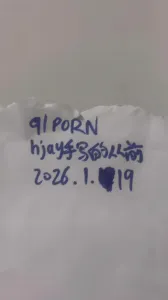 91PORN
hjay手写的从前
2026.1.19